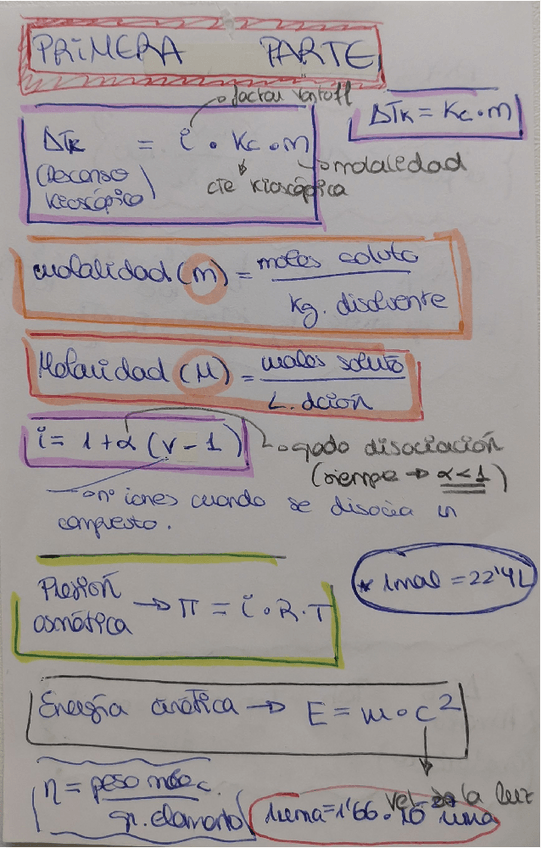 PRIMERA PARTE
factor Vantoff
ΔTK = Kc·m
ΔTK = i · Kc·m
(Descenso
kioscópico)
molalidad
cte kioscópica
molalidad (m) = moles soluto
Kg. disolvente
Molaridad (M) = moles soluto
L. dción
i = 1 + α (v - 1)
grado disociación
(siempre → α<1)
nº iones cuando se disocia un
compuesto.
* 1mol = 22'4L
Presión
osmótica → π = i · R · T
Energía cinética → E = m·c²
vel de la luz
n = peso molec.
gr. elemento
1uma = 1'66 · 10 uma